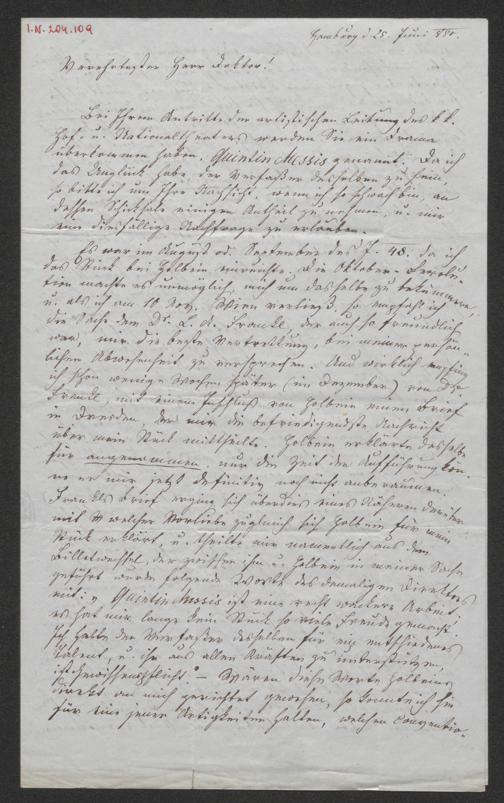 I.N. 204.109
Hamburg d. 25. Juni 850.
Verehrtester Herr Doktor!
Bei Ihrem Antritte der artistischen Leitung des k. k.
Hof- u. Nationaltheaters werden Sie ein Drama
überkommen haben, Quintin Messis genannt. Da ich
das Unglück habe, der Verfaßer desselben zu sein,
so bitte ich um Ihre Nachsicht, wenn ich so schwach bin, an
dessen Schicksale einigen Antheil zu nehmen, u. mir
eine diesfällige Nachfrage zu erlauben.
Es war im August od. September des J. 48. da ich
das Stück bei Holbein einreichte. Die Oktober-Revolu-
tion machte es unmöglich, mich um dasselbe zu bekümmern,
u. als ich am 10 Nov. Wien verließ, so empfahl ich
die Sache dem Dr. L. A. Frankl, der auch so freundlich
war, mir die beste Vertretung, bei meiner persön-
lichen Abwesenheit zu versprechen. Und wirklich empfing
ich schon wenige Wochen später (im Dezember) von
Frankl, mit einem von Holbein einen Brief
in Dresden, der mir die befriedigendste Nachricht
über mein Stück mittheilte. Holbein erklärte dasselbe
für angenommen, nur die Zeit der Aufführung kön-
ne er mir jetzt definitiv noch nicht anberaumen.
Frankls Brief erging sich überdies eines Näheren darüber
mit welcher Vorliebe zugleich sich Holbein für mein
Stück erklärt, u. theilte mir namentlich aus dem
Billetwechsel, der zwischen ihm u. Holbein in meiner Sache
geführt wurde folgende Worte des damaligen Direktors
mit: „Quintin Messis ist eine recht wackere Arbeit.
es hat mir lange kein Stück so viele Freude gemacht.
Ich halte den Verfaßer desselben für ein entschiedenes
Talent, u. ihn aus allen Kräften zu unterstützen,
ist Gewissenspflicht." — Wären diese Worte Holbeins
direkt an mich gerichtet gewesen, so könnte ich sie
für eine jener Artigkeiten halten, welchen Conventio-